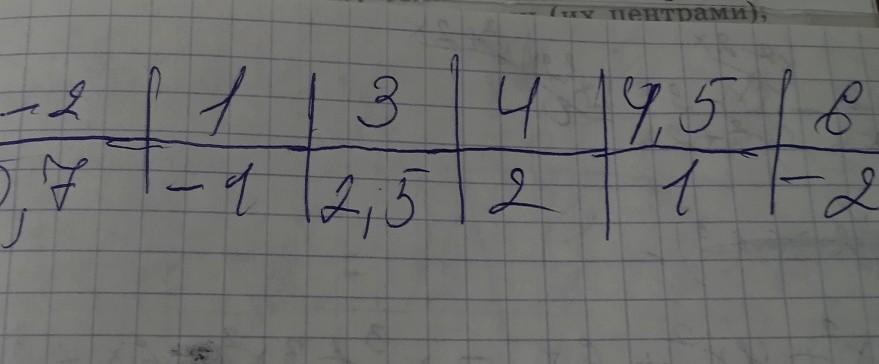 (их центрами);
-2 | 1 | 3 | 4 | 4,5 | 6
,7 | -1 | 2,5 | 2 | 1 | -2